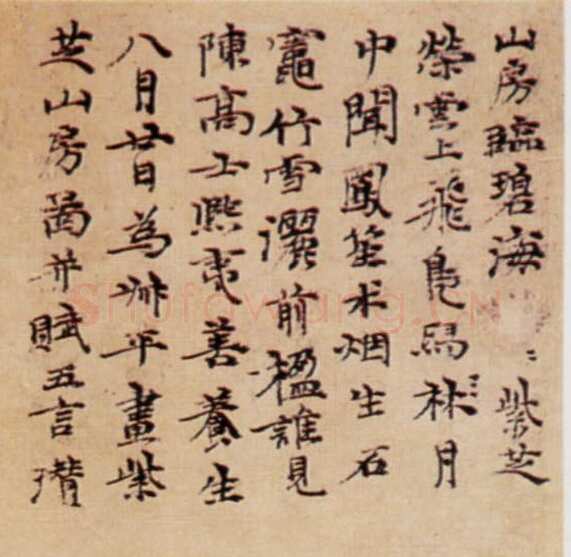 山房臨碧海〻紫芝
榮雲上飛鳧舄林月
中聞鳳笙朮烟生石
竈竹雪灑前楹誰見
陳高士熙夷善養生
八月廿日為叔平畫紫
芝山房啚并賦五言瓚
Shufawang.CN